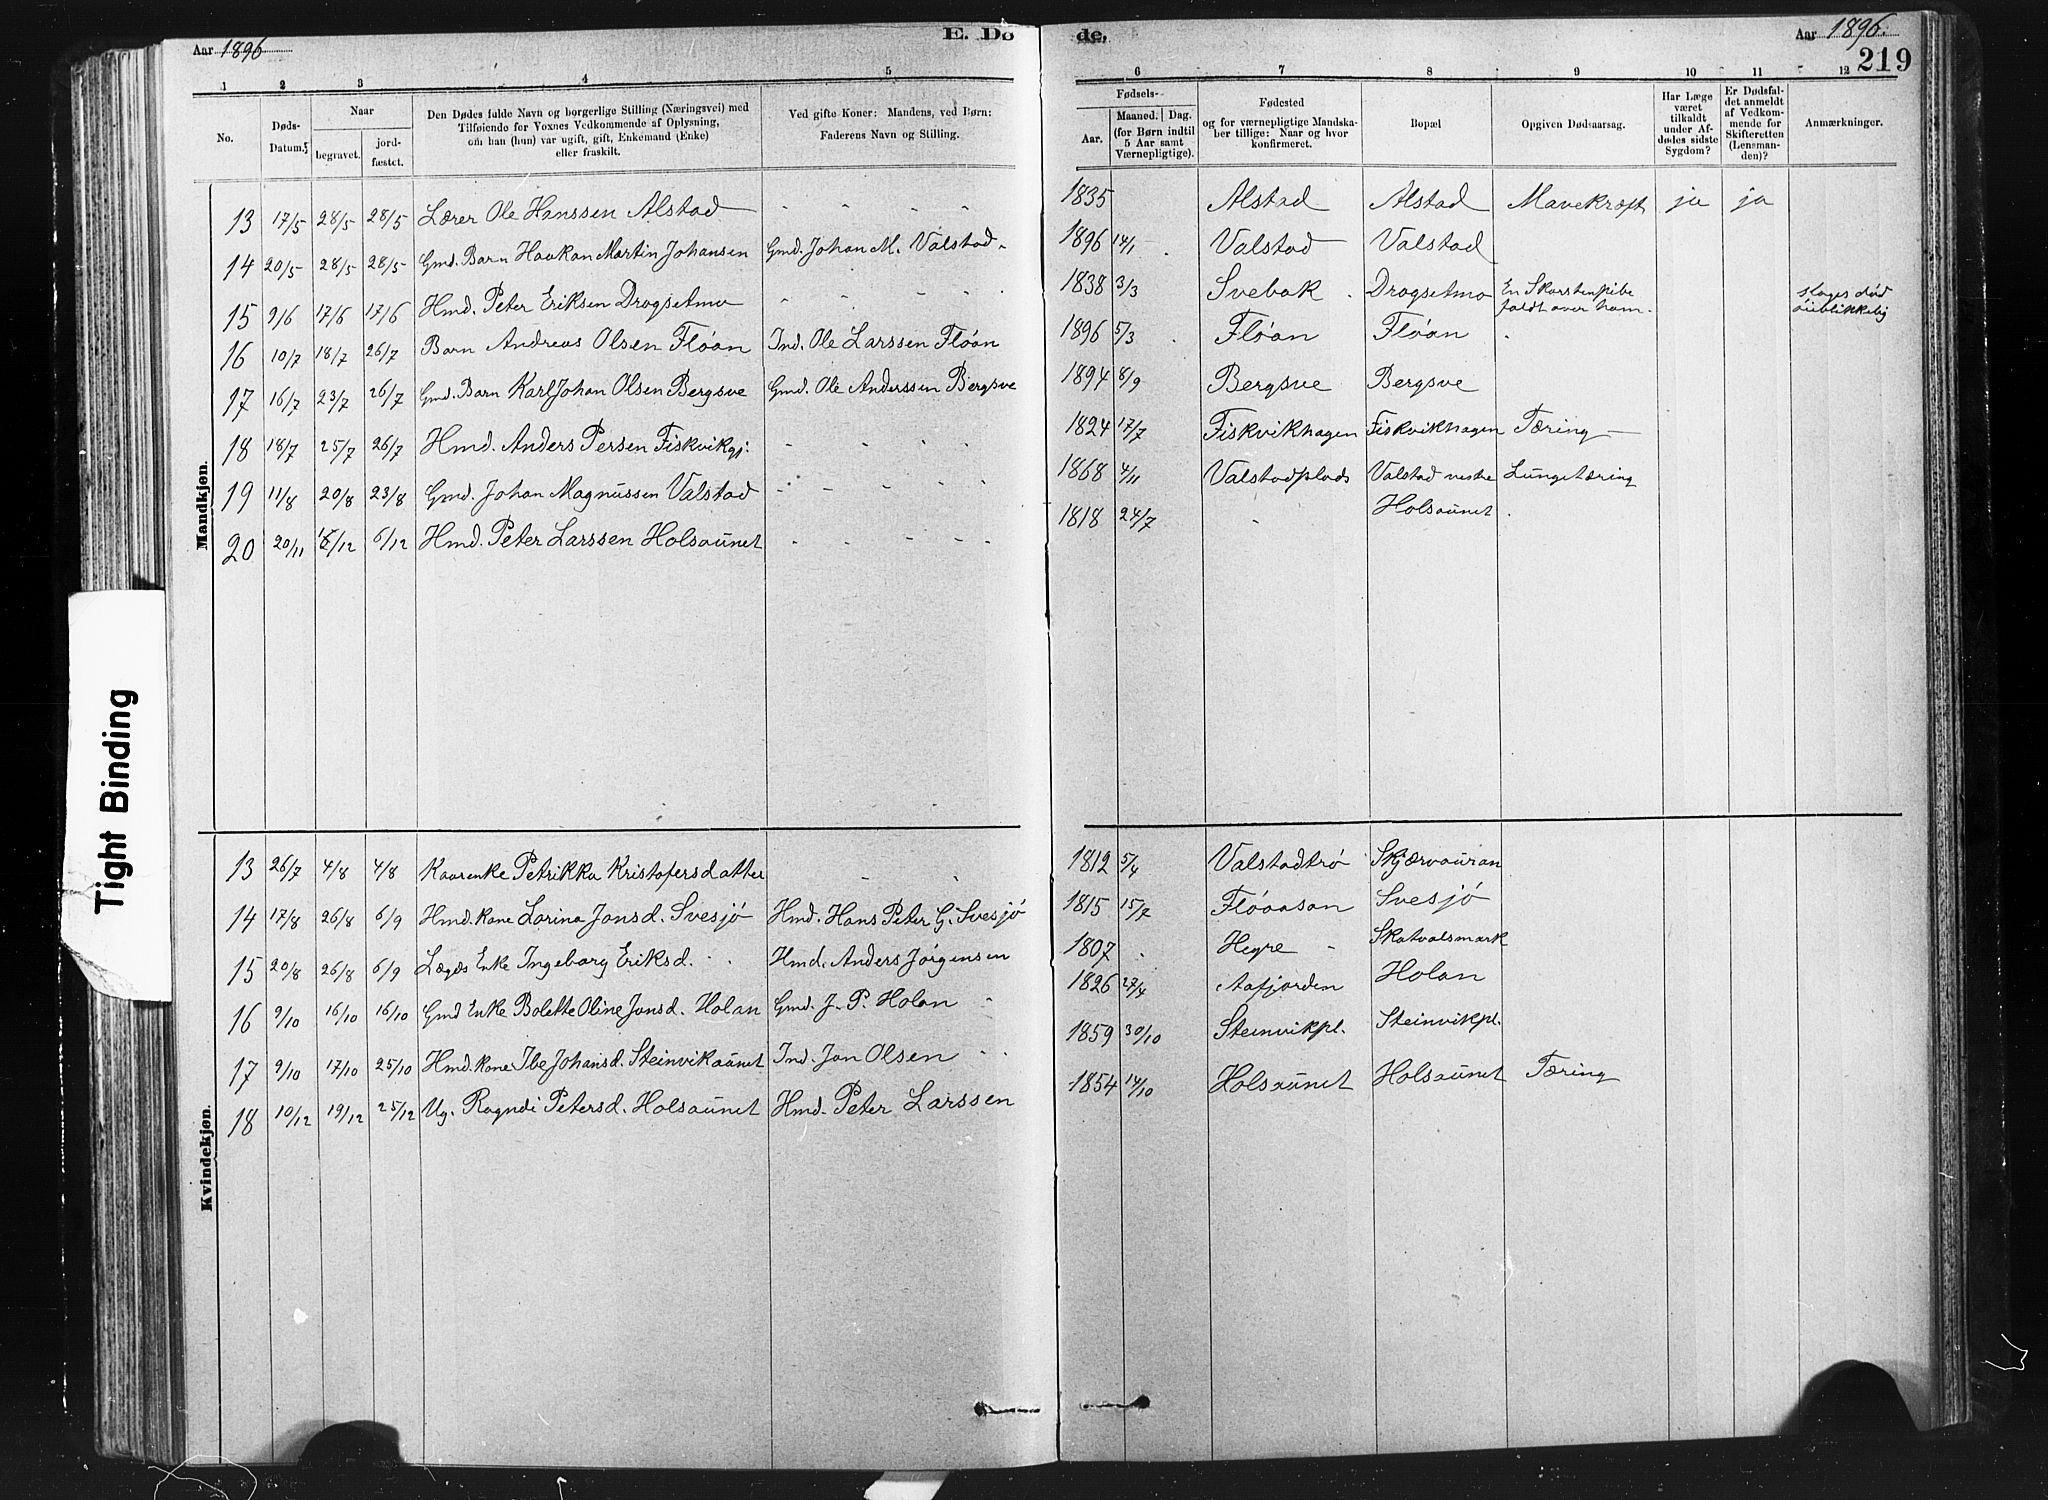 Aar 1896
E. Dø
de.
Aar 1896.
219
1 2 3 4 5
6 7 8 9 10 11 12
No.
Døds-
Datum.
Naar
begravet.
jord-
fæstet.
Den Dødes fulde Navn og borgerlige Stilling (Næringsvei) med
Tilføiende for Voxnes Vedkommende af Oplysning,
om han (hun) var ugift, gift, Enkemand (Enke)
eller fraskilt.
Ved gifte Koner: Mandens, ved Børn:
Faderens Navn og Stilling.
Fødsels-
Aar.
Maaned. Dag.
(for Børn indtil
5 Aar samt
Værnepligtige).
Fødested
og for værnepligtige Mandska-
ber tillige: Naar og hvor
konfirmeret.
Bopæl
Opgiven Dødsaarsag.
Har Læge
været
tilkaldt
under Af-
dødes sidste
Sygdom?
Er Dødsfal-
det anmeldt
af Vedkom-
mende for
Skifteretten
(Lensman-
den)?
Anmærkninger.
Mandkjøn.
13 17/5 28/5 28/5 Lærer Ole Hanssen Alstad - - - - 1835 Alstad Alstad Mavekræft ja ja
14 20/5 28/5 28/5 Gmd. Barn Haakon Martin Johansen Gmd. Johan M. Valstad. 1896 14/1 Valstad Valstad
15 9/6 17/6 17/6 Hmd. Peter Eriksen Drogsetmo - - - - 1838 3/3 Svebak Drogsetmo En Skorstenspibe
faldt over ham. øiblikkelig
16 10/7 18/7 26/7 Barn Andreas Olsen Fløan Ind. Ole Larssen Fløan 1896 5/3 Fløan Fløan
17 16/7 23/7 26/7 Gmd. Barn Karl Johan Olsen Bergsve Gmd. Ole Anderssen Bergsve 1894 8/9 Bergsve Bergsve
18 18/7 25/7 26/7 Hmd. Anders Persen Fiskvikgj: - - - - 1824 17/7 Fiskvikhagen Fiskvikhagen Tæring
19 11/8 20/8 23/8 Gmd. Johan Magnussen Valstad - - - - 1868 4/11 Valstadplads Valstad vestre Lungetæring
20 20/11 6/12 6/12 Hmd. Peter Larssen Holsaunet - - - - 1818 24/7 - Holsaunet
Kvindekjøn.
13 26/7 4/8 4/8 Kaarenke Petrikka Kristofersdatter - - 1812 5/4 Valstadtrø Skjærvauran
14 17/8 26/8 6/9 Hmd. Kone Larina Jonsd. Svesjø Hmd. Hans Peter G. Svesjø 1815 15/7 Fløaasan Svesjø
15 20/8 26/8 6/9 Lægds Enke Ingeborg Eriksd. - - Hmd. Anders Jørgensen 1807 Hegre - Skatvalsmark
16 9/10 16/10 16/10 Gmd Enke Bolette Oline Jonsd. Holan Gmd. J. P. Holan - 1826 27/4 Aafjorden Holan
17 9/10 17/10 25/10 Hmd. Kone Ibe Johansd. Steinvikaunet Ind. Jon Olsen - - 1859 30/10 Steinvikpl. Steinvikpl.
18 10/12 19/12 25/12 Ug. Ragndi Petersd. Holsaunet Hmd. Peter Larssen 1854 14/10 Holsaunet Holsaunet Tæring
Tight Binding